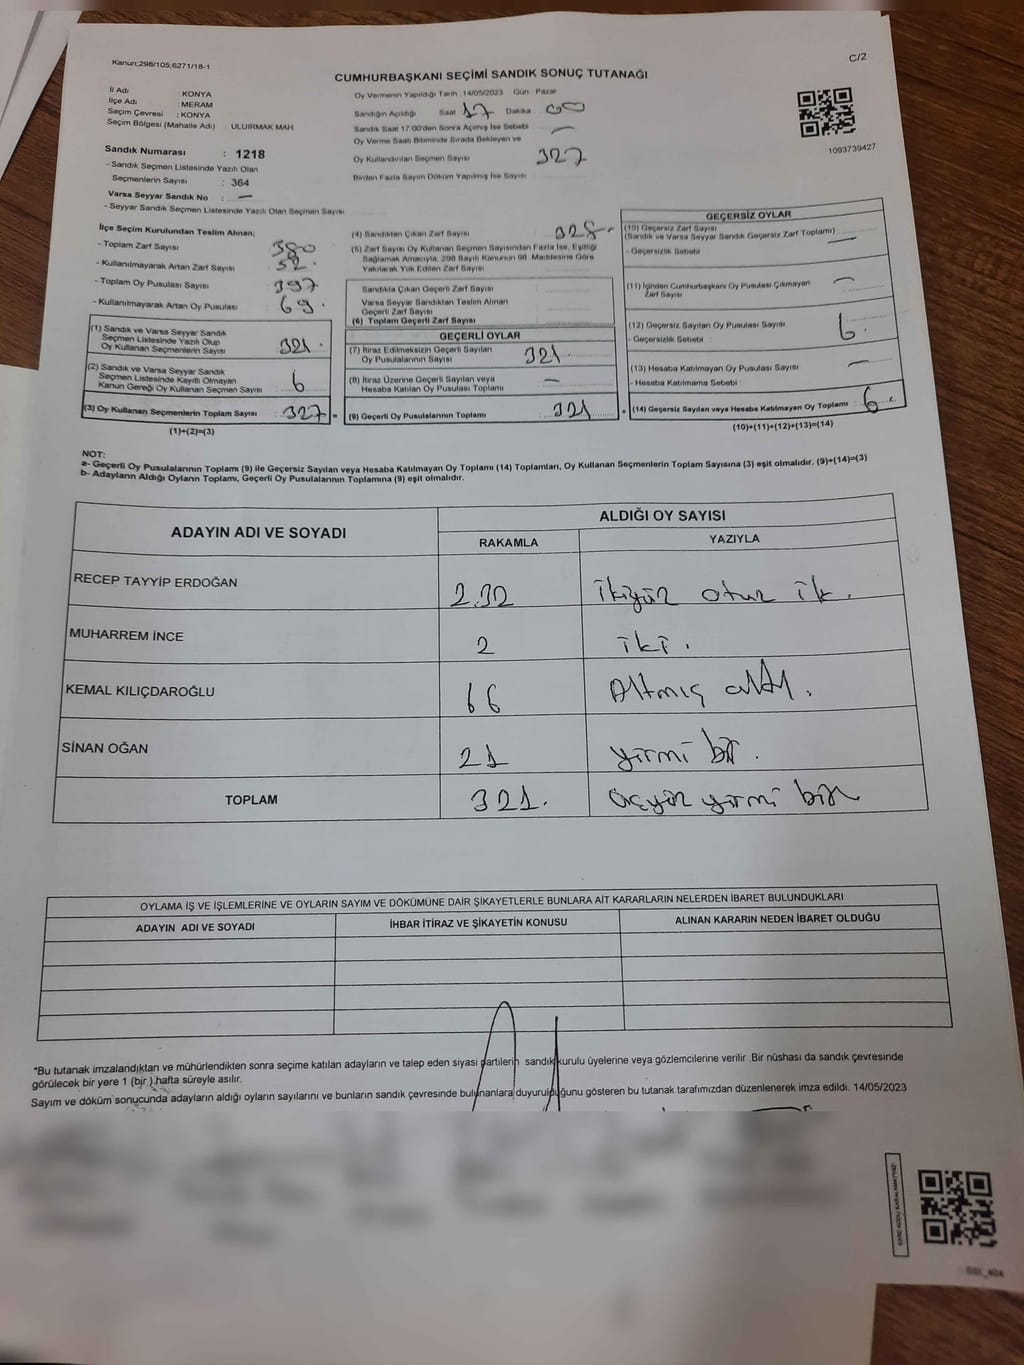 Kanun;298/105;6271/18-1
C/2
CUMHURBAŞKANI SEÇİMİ SANDIK SONUÇ TUTANAĞI
İl Adı : KONYA
İlçe Adı : MERAM
Seçim Çevresi : KONYA
Seçim Bölgesi (Mahalle Adı) : ULUIRMAK MAH.
Oy Vermenin Yapıldığı Tarih 14/05/2023 Gün : Pazar
Sandığın Açıldığı Saat 17 Dakika 00
Sandık Saat 17:00'den Sonra Açılmış İse Sebebi —
Oy Verme Saati Bitiminde Sırada Bekleyen ve
Oy Kullandırılan Seçmen Sayısı 327
Birden Fazla Sayım Döküm Yapılmış İse Sayısı
1093739427
Sandık Numarası : 1218
- Sandık Seçmen Listesinde Yazılı Olan
Seçmenlerin Sayısı : 364
Varsa Seyyar Sandık No : —
- Seyyar Sandık Seçmen Listesinde Yazılı Olan Seçmen Sayısı
İlçe Seçim Kurulundan Teslim Alınan;
- Toplam Zarf Sayısı 380
- Kullanılmayarak Artan Zarf Sayısı 52.
- Toplam Oy Pusulası Sayısı 397
- Kullanılmayarak Artan Oy Pusulası 69.
(1) Sandık ve Varsa Seyyar Sandık
Seçmen Listesinde Yazılı Olup
Oy Kullanan Seçmenlerin Sayısı 321.
(2) Sandık ve Varsa Seyyar Sandık
Seçmen Listesinde Kayıtlı Olmayan
Kanun Gereği Oy Kullanan Seçmen Sayısı 6
(3) Oy Kullanan Seçmenlerin Toplam Sayısı : 327 =
(1)+(2)=(3)
(4) Sandıktan Çıkan Zarf Sayısı 328-
(5) Zarf Sayısı Oy Kullanan Seçmen Sayısından Fazla İse, Eşitliği
Sağlamak Amacıyla, 298 Sayılı Kanunun 98. Maddesine Göre
Yakılarak Yok Edilen Zarf Sayısı
Sandıkta Çıkan Geçerli Zarf Sayısı
Varsa Seyyar Sandıktan Teslim Alınan
Geçerli Zarf Sayısı
(6) Toplam Geçerli Zarf Sayısı
GEÇERLİ OYLAR
(7) İtiraz Edilmeksizin Geçerli Sayılan
Oy Pusulalarının Sayısı 321
(8) İtiraz Üzerine Geçerli Sayılan veya
Hesaba Katılan Oy Pusulası Toplamı —
(9) Geçerli Oy Pusulalarının Toplamı 321 +
GEÇERSİZ OYLAR
(10) Geçersiz Zarf Sayısı
(Sandık ve Varsa Seyyar Sandık Geçersiz Zarf Toplamı) —
- Geçersizlik Sebebi :
(11) İçinden Cumhurbaşkanı Oy Pusulası Çıkmayan
Zarf Sayısı —
(12) Geçersiz Sayılan Oy Pusulası Sayısı 6.
- Geçersizlik Sebebi :
(13) Hesaba Katılmayan Oy Pusulası Sayısı —
- Hesaba Katılmama Sebebi :
(14) Geçersiz Sayılan veya Hesaba Katılmayan Oy Toplamı : 6
(10)+(11)+(12)+(13)=(14)
NOT:
a- Geçerli Oy Pusulalarının Toplamı (9) ile Geçersiz Sayılan veya Hesaba Katılmayan Oy Toplamı (14) Toplamları, Oy Kullanan Seçmenlerin Toplam Sayısına (3) eşit olmalıdır. (9)+(14)=(3)
b- Adayların Aldığı Oyların Toplamı, Geçerli Oy Pusulalarının Toplamına (9) eşit olmalıdır.
ADAYIN ADI VE SOYADI ALDIĞI OY SAYISI
RAKAMLA YAZIYLA
RECEP TAYYİP ERDOĞAN 232 ikiyüz otuz ik.
MUHARREM İNCE 2 iki.
KEMAL KILIÇDAROĞLU 66 Altmış altı.
SİNAN OĞAN 21 yirmi bir.
TOPLAM 321. üçyüz yirmi bir
OYLAMA İŞ VE İŞLEMLERİNE VE OYLARIN SAYIM VE DÖKÜMÜNE DAİR ŞİKAYETLERLE BUNLARA AİT KARARLARIN NELERDEN İBARET BULUNDUKLARI
ADAYIN ADI VE SOYADI İHBAR İTİRAZ VE ŞİKAYETİN KONUSU ALINAN KARARIN NEDEN İBARET OLDUĞU
*Bu tutanak imzalandıktan ve mühürlendikten sonra seçime katılan adayların ve talep eden siyasi partilerin sandık kurulu üyelerine veya gözlemcilerine verilir .Bir nüshası da sandık çevresinde
görülecek bir yere 1 (bir ) hafta süreyle asılır.
Sayım ve döküm sonucunda adayların aldığı oyların sayılarını ve bunların sandık çevresinde bulunanlara duyurulduğunu gösteren bu tutanak tarafımızdan düzenlenerek imza edildi. 14/05/2023